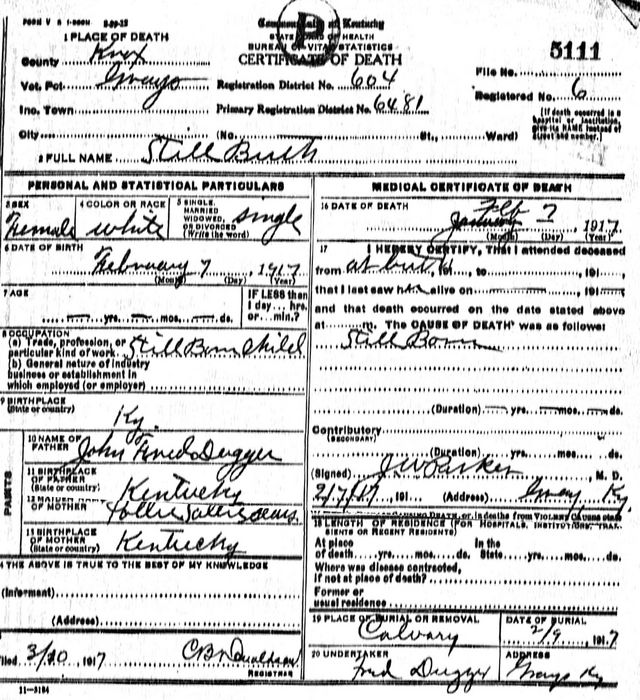 FORM V S 1-500M 8-29-15
Commonwealth of Kentucky
STATE BOARD OF HEALTH
BUREAU OF VITAL STATISTICS
CERTIFICATE OF DEATH
1 PLACE OF DEATH
County Knox
Vot. Pct. Grays
Inc. Town
City (No. St., Ward)
Registration District No. 604
Primary Registration District No. 6481
5111
File No.
Registered No. 6
(If death occurred in a hospital or institution, give its NAME instead of street and number.)
2 FULL NAME Still Birth
PERSONAL AND STATISTICAL PARTICULARS
3 SEX Female
4 COLOR OR RACE white
5 SINGLE, MARRIED WIDOWED, OR DIVORCED (Write the word) Single
6 DATE OF BIRTH
February 7, 1917
(Month) (Day) (Year)
7 AGE
yrs. mos. ds.
IF LESS than 1 day... hrs. or... min.?
8 OCCUPATION
(a) Trade, profession, or particular kind of work Still Born Child
(b) General nature of industry business or establishment in which employed (or employer)
9 BIRTHPLACE
(State or country) Ky.
PARENTS
10 NAME OF FATHER John Fred Dugger
11 BIRTHPLACE OF FATHER (State or country) Kentucky
12 MAIDEN NAME OF MOTHER
13 BIRTHPLACE OF MOTHER (State or country) Kentucky
14 THE ABOVE IS TRUE TO THE BEST OF MY KNOWLEDGE
(Informant)
(Address)
Filed 3/20 1917
REGISTRAR
11-3184
MEDICAL CERTIFICATE OF DEATH
16 DATE OF DEATH
Feb 7 1917
January
(Month) (Day) (Year)
17 I HEREBY CERTIFY, That I attended deceased
from at birth, 191 , to , 191 ,
that I last saw h alive on , 191 ,
and that death occurred on the date stated above
at m. The CAUSE OF DEATH was as follows:
Still Born
(Duration) yrs. mos. ds.
Contributory
(SECONDARY)
(Duration) yrs. mos. ds.
(Signed) J W Parker, M. D.
2/7/17, 191 (Address) Gray, Ky.
or, in deaths from VIOLENT CAUSES state
18 LENGTH OF RESIDENCE (FOR HOSPITALS, INSTITUTIONS, TRANSIENTS OR RECENT RESIDENTS)
At place of death yrs. mos. ds. In the State yrs. mos. ds.
Where was disease contracted,
if not at place of death?
Former or
usual residence
19 PLACE OF BURIAL OR REMOVAL
Calvary
DATE OF BURIAL
2/9 1917
20 UNDERTAKER
Fred Dugger
ADDRESS
Grays Ky